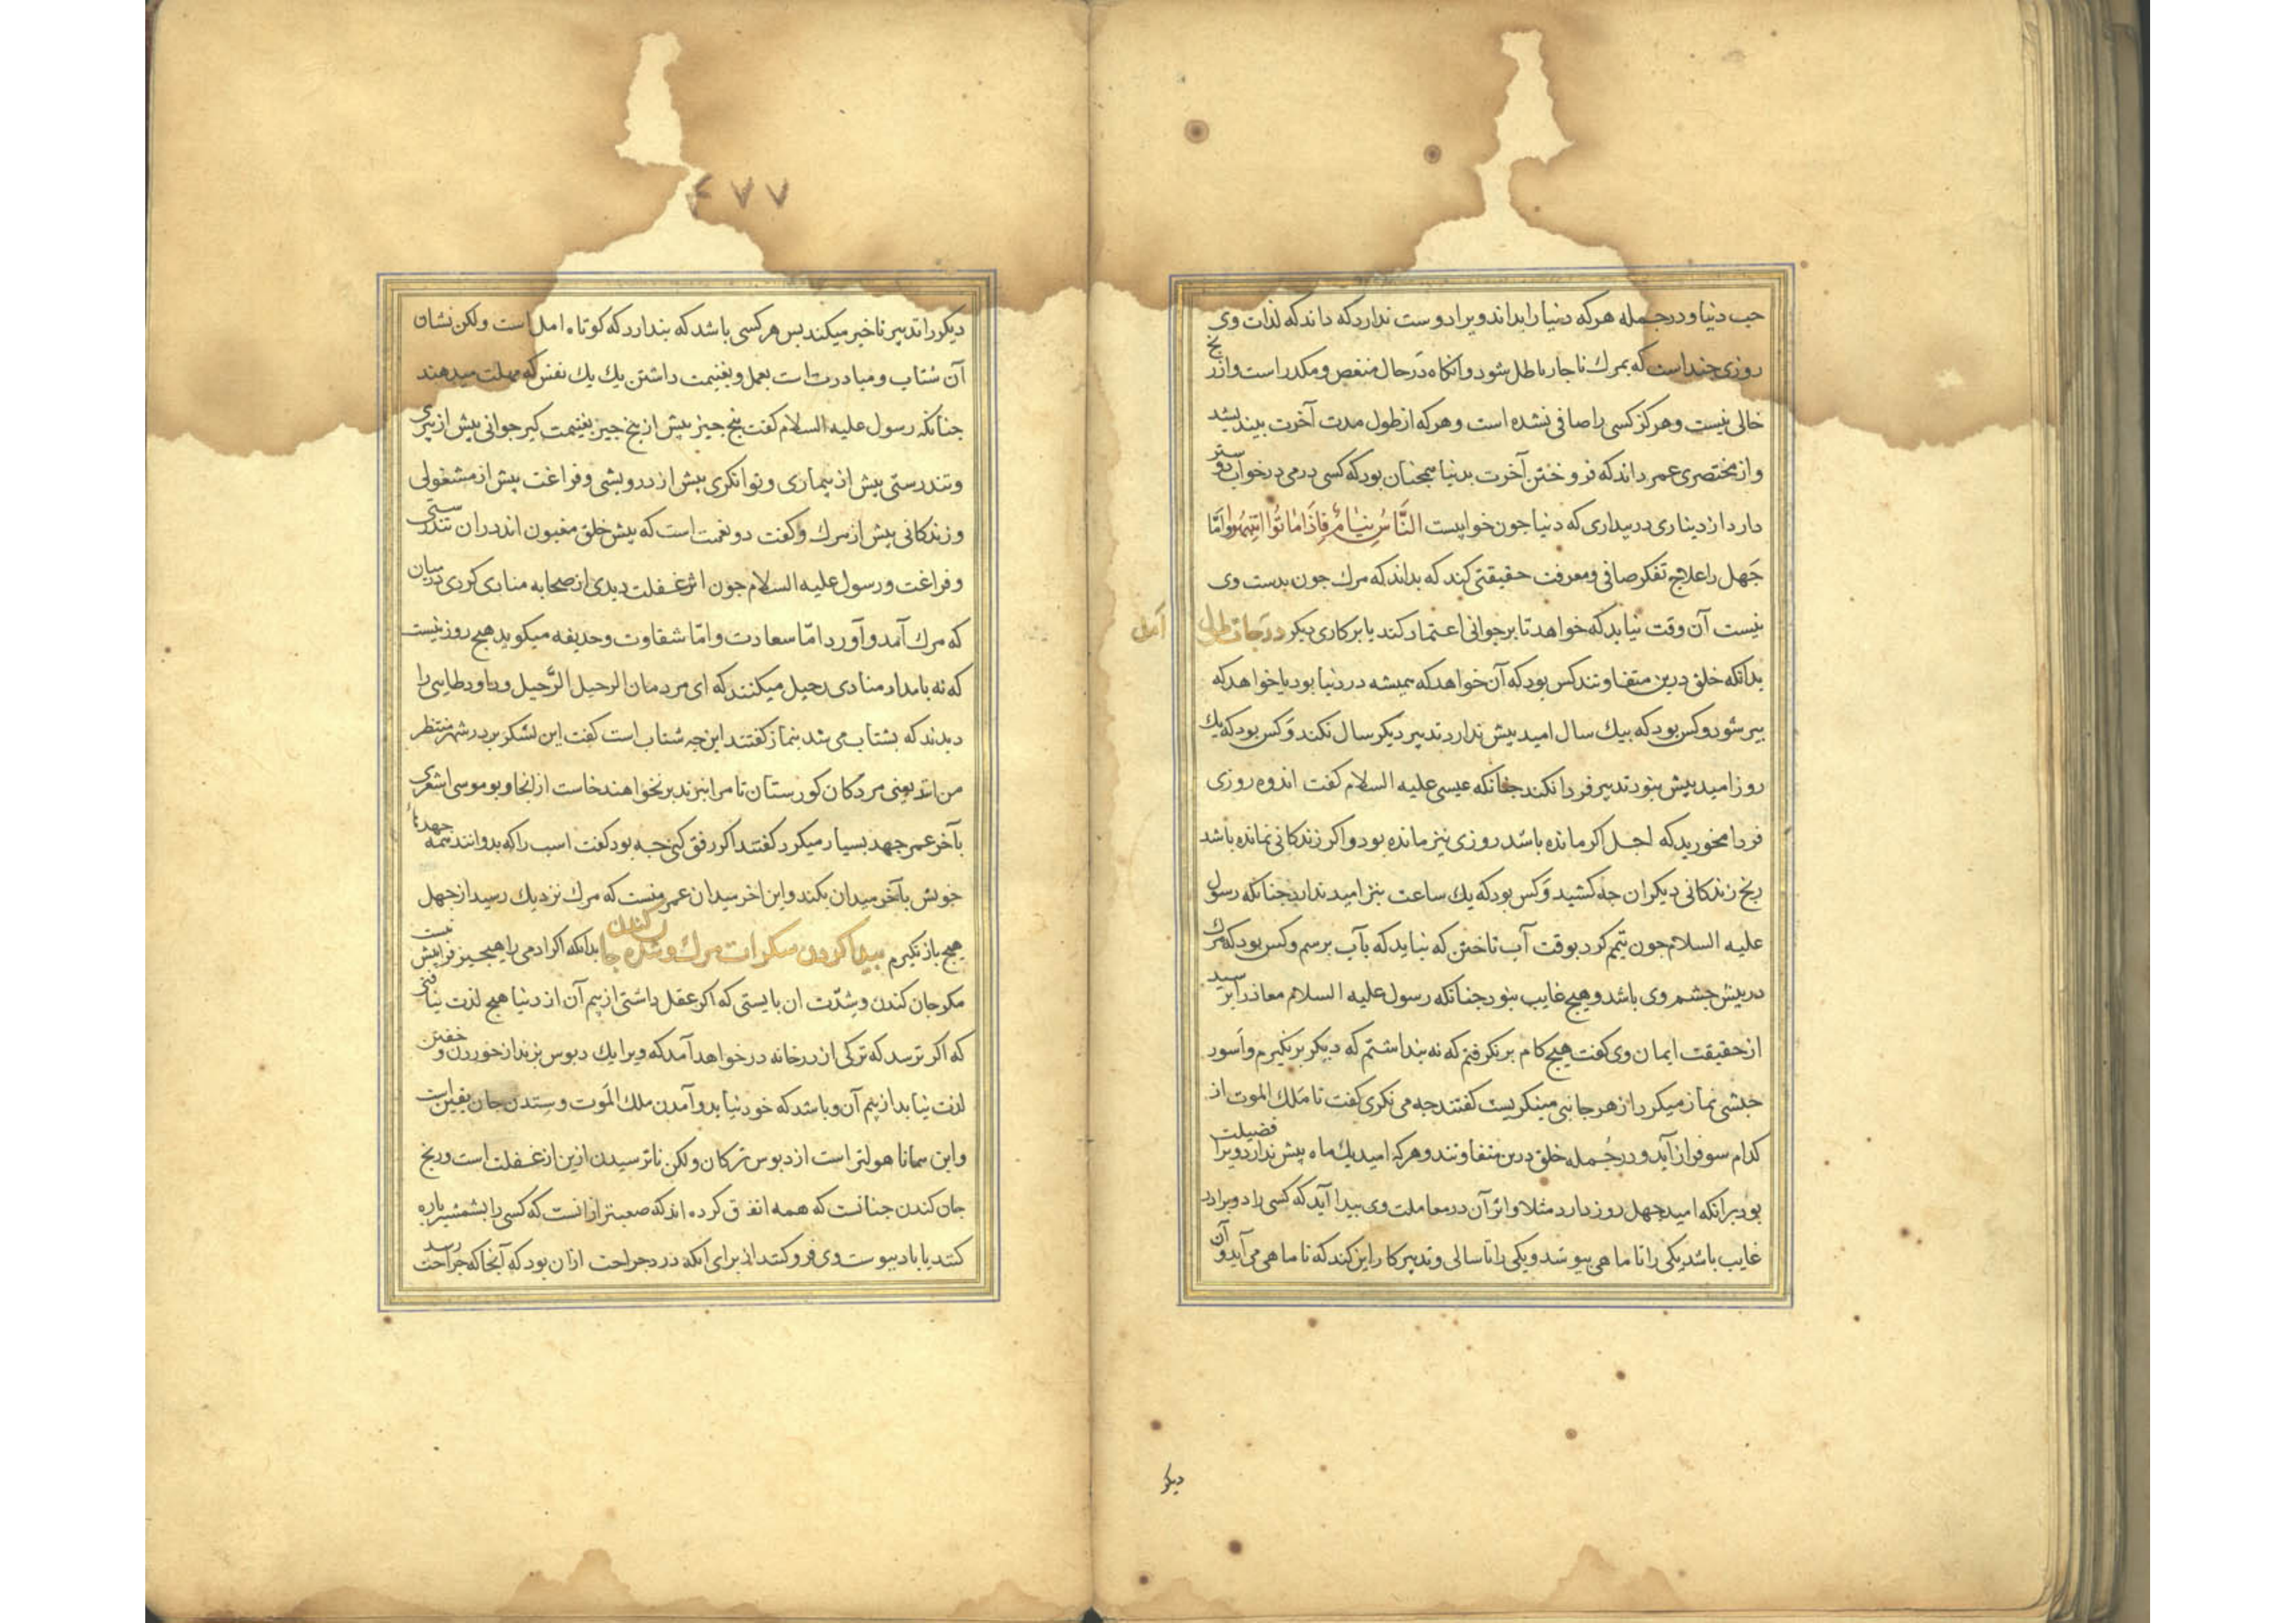 حب دنیا و در جمله هر که دنیا را بداند ویرا دوست ندارد که داند که لذات وی
روزی چند است که بمرك ناچار باطل شود و آنکاه در حال منغص و مکدر است و از رنج
خالی نیست و هرکز کسی را صافی نشده است و هر که از طول مدت آخرت بیندیشد
و از مختصری عمر داند که فروختن آخرت بدنیا همچنان بود که کسی درمی در خواب دوستر
دارد از دیناری در بیداری که دنیا جون خوابیست النَّاسُ نِیَامٌ فَاِذَا مَاتُوا انتَبَهُوا وامّا
جَهل را علاج تفکر صافی و معرفت حقیقتی کند که بداند که مرك جون بدست وی
نیست آن وقت نیاید که خواهد تا بر جوانی اعتماد کند یا بر کاری دیکر درجات طول
امل
بدانکه خلق درین متفاوتند کس بود که آن خواهد که همیشه در دنیا بود یا خواهد که
پیر شود و کس بود که بیك سال امید بیش ندارد تدبیر دیکر سال نکند و کس بود که یك
روز امید بیش نبود تدبیر فردا نکند چنانکه عیسی علیه السلام کفت اندوه روزی
فردا مخورید که اجل اکر مانده باشد روزی نیز مانده بود و اکر زندکانی نمانده باشد
رنج زندکانی دیکران چه کشید و کس بود که یك ساعت نیز امید ندارد جنانکه رسول
علیه السلام جون تیمم کرد بوقت آب تاختن که نباید که بآب برسم و کس بود که مرك
در بیش جشم وی باشد و هیج غایب نبود جنانکه رسول علیه السلام معاذ را برسید
از حقیقت ایمان وی کفت هیج کام برنکرفتم که نه بنداشتم که دیکر برنکیرم و اَسود
حبشی نماز میکرد از هر جانبی مینکریست کفتند چه می نکری کفت تا مَلك الموت از
کدام سو فراز آید و در جُمله خلق درین متفاوتند و هر که امید یك ماه بیش ندارد ویرا فضیلت
بود بر آنکه امید چهل روز دارد مثلا و اثر آن در معاملت وی بیدا آید که کسی را دو برادر
غایب باشد یکی را تا ماهی بیوشد و یکی را تا سالی و تدبیر کار این کند که تا ماهی می آید و آن
دیکر
۴۷۷
دیکر را تدبیر تاخیر میکند بس هر کسی باشد که بندارد که کوتاه امل است ولکن نشان
آن شتاب و مبادرت است بعمل و بغنیمت داشتن یك یك نفس که مهلت میدهند
جنانکه رسول علیه السلام کفت بنج جیز بیش از بنج جیز بغنیمت کیر جوانی بیش از بیری
و تندرستی بیش از بیماری و توانکری بیش از درویشی و فراغت بیش از مشغولی
و زندکانی بیش از مرك و کفت دو نعمت است که بیش خلق مغبون اند در ان تندرستی
و فراغت و رسول علیه السلام جون اثر غفلت دیدی از صحابه منادی کردی در میان
که مرك آمد و آورد امّا سعادت و امّا شقاوت و حذیفه میکوید هیج روز نیست
که نه بامداد منادی رحیل میکنند که ای مردمان الرحیل الرَّحیل و داود طایی را
دیدند که بشتاب می شد بنماز کفتند این چه شتاب است کفت این لشکر بر در شهر منتظر
من اند یعنی مردکان کورستان تا مرا نبرند برنخواهند خاست از انجا و بوموسی اشعری
بآخر عمر جهد بسیار میکرد کفتند اکر رفق کنی چه بود کفت اسب را که بدوانند همه جهدها
خویش بآخر میدان بکند و این اخر میدان عمر منست که مرك نزدیك رسید از جهل
هیج باز نکیرم بیدا کردن سکرات مرك و شدة جان کندن بدانکه اکر ادمی را هیج جیز فرا بیش نیست
مکر جان کندن و شدّت ان بایستی که اکر عقل داشتی از بیم آن از دنیا هیج لذت نیافتی
که اکر ترسد که ترکی از در خانه در خواهد آمد که ویرا یك دبوس بزند از خوردن و خفتن
لذت نیابد از بیم آن و باشد که خود نیاید و آمدن ملك المَوت و ستدن جان یقین است
و این همانا هولتر است از دبوس ترکان ولکن ناترسیدن ازین از غفلت است و رنج
جان کندن جنانست که همه اتفاق کرده اند که صعبتر از انست که کسی را بشمشیر باره
کنند یا باد ببوست وی فرو کنند از برای آنکه درد جراحت از ان بود که آنجا که جراحت رسد